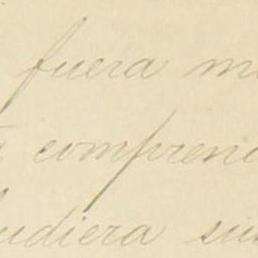 fuera m
comprend
udiera sus